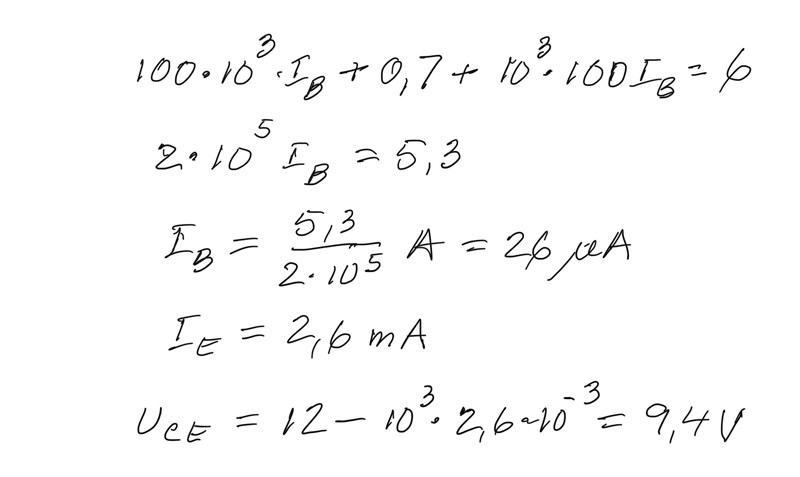 100·10³·I_B + 0,7 + 10³·100I_B = 6
2·10⁵ I_B = 5,3
I_B = 5,3 / 2·10⁵ A = 26 μA
I_E = 2,6 mA
U_CE = 12 − 10³·2,6·10⁻³ = 9,4 V